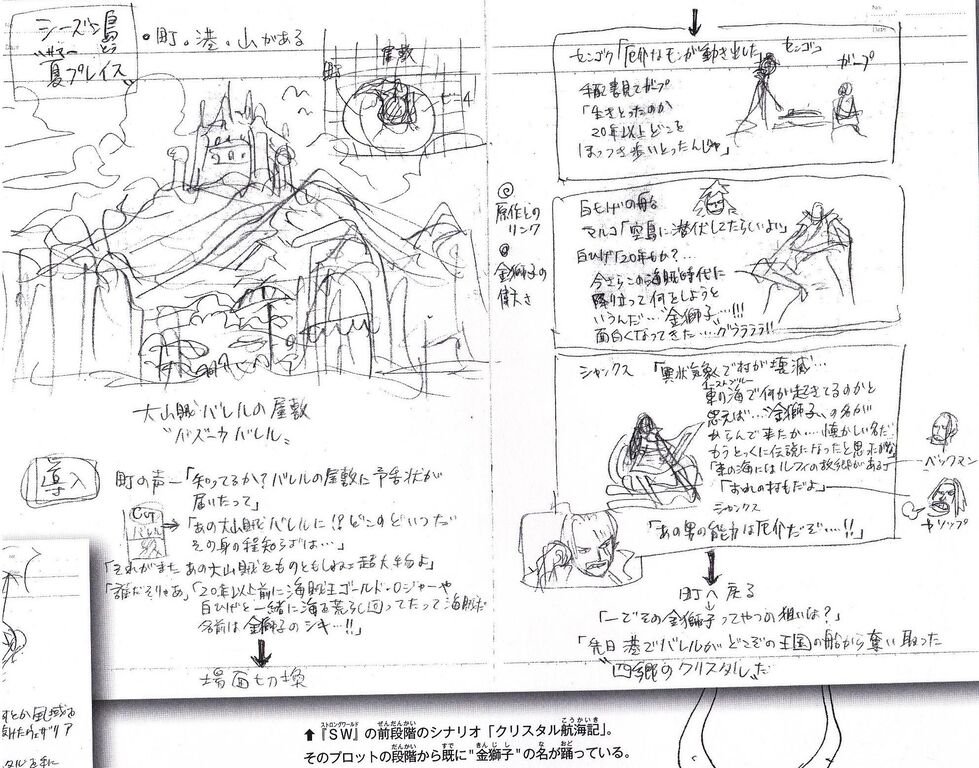 シーズン島
夏プレイス
・町・港・山がある
屋敷
大山賊バレルの屋敷
導入
町の声―「知ってるか?バレルの屋敷に予告状が
届いたって」
「あの大山賊バレルに!?どこのどいつだ
その身の程知らずは…」
「それがまたあの大山賊をものともしねェ超大物よ」
「誰だそりゃあ」「20年以上前に海賊王ゴールド・ロジャーや
白ひげと一緒に海を荒らし回ってたって海賊だ
名前は金獅子のシキ…!!」
場面切換
センゴク「厄介なモンが動き出した」
センゴク
ガープ
手配書見てガープ
「生きとったのか
20年以上どこを
ほっつき歩いとったんじゃ」
原作との
リンク
金獅子の
偉大さ
白ひげの船
マルコ「空島に潜伏してたらしいよい」
白ひげ「20年もか?…
今さらこの海賊時代に
降り立って何をしようと
いうんだ…“金獅子”…!!!
面白くなってきた…グララララ!!
シャンクス「異状気象で村が壊滅…
イーストブルー
東の海で何が起きてるのかと
思えば…“金獅子”の名が
うかんで来たか…懐かしい名だ
もうとっくに伝説になったと思ったがな」
「東の海にはルフィの故郷がある」
ベックマン
「おれの村もだよ」
ヤソップ
シャンクス
「あの男の能力は厄介だぞ…!!」
町へ戻る
「―でその金獅子ってやつの狙いは?」
「先日港でバレルがどこぞの王国の船から奪い取った
“四郷のクリスタル”だ
↑『SW』の前段階のシナリオ「クリスタル航海記」。
そのプロットの段階から既に"金獅子"の名が踊っている。